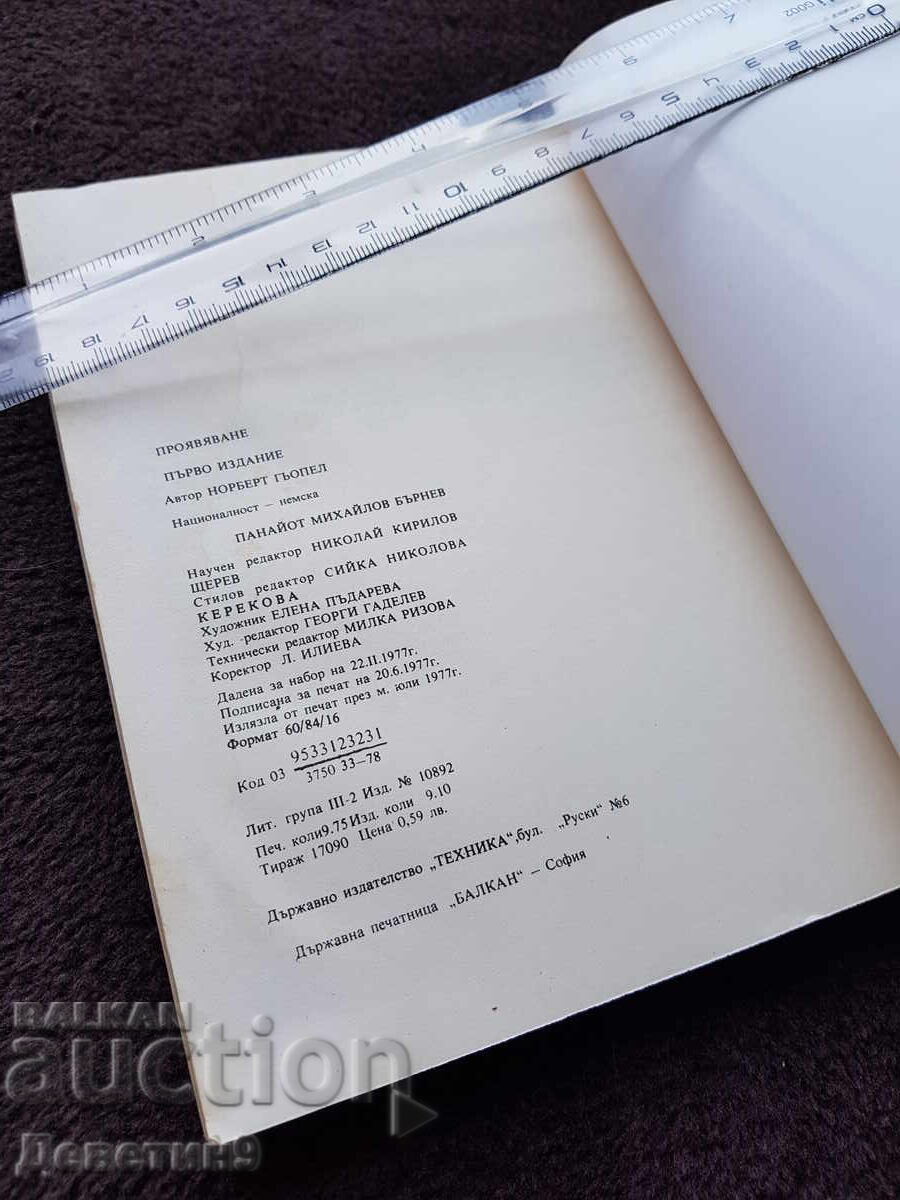 ПРОЯВЯВАНЕ
ПЪРВО ИЗДАНИЕ
Автор НОРБЕРТ ГЬОПЕЛ
Националност — немска
ПАНАЙОТ МИХАЙЛОВ БЪРНЕВ
Научен редактор НИКОЛАЙ КИРИЛОВ
ЩЕРЕВ
Стилов редактор СИЙКА НИКОЛОВА
КЕРЕКОВА
Художник ЕЛЕНА ПЪДАРЕВА
Худ. редактор ГЕОРГИ ГАДЕЛЕВ
Технически редактор МИЛКА РИЗОВА
Коректор Л. ИЛИЕВА
Дадена за набор на 22.II.1977г.
Подписана за печат на 20.6.1977г.
Излязла от печат през м. юли 1977г.
Формат 60/84/16
Код 03 9533123231
3750 33—78
Лит. група III-2 Изд. № 10892
Печ. коли 9.75 Изд. коли 9.10
Тираж 17090 Цена 0,59 лв.
Държавно издателство „ТЕХНИКА“, бул. „Руски“ №6
Държавна печатница „БАЛКАН“ — София
0 1 2 3 4 5 6 7 8 9 10 11 12 13 14 15 16 17 18 19
CM
1 2 3 4 5 6 7
BALKAN
auction
Деветин9